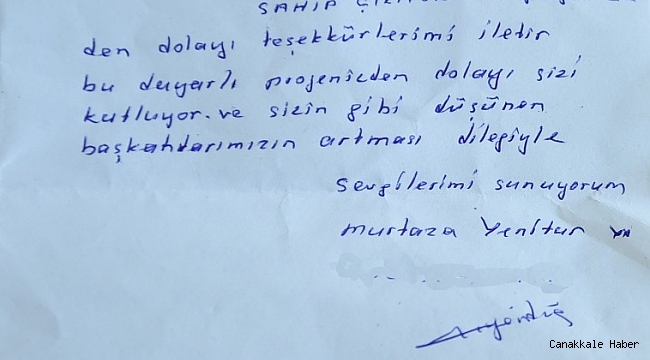 SAHİP
den dolayı teşekkürlerimi iletir
bu duyarlı projenizden dolayı sizi
kutluyor. ve sizin gibi düşünen
başkanlarımızın artması dileğiyle
sevgilerimi sunuyorum
murtaza
Canakkale Haber